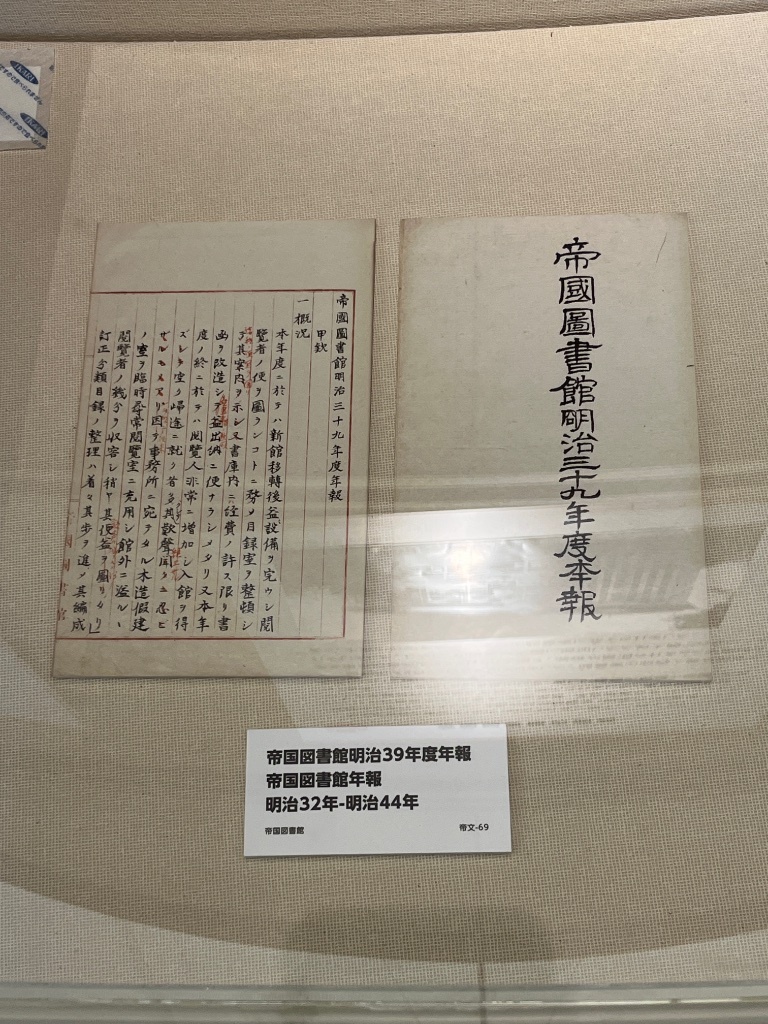 帝國圖書館明治三十九年度年報
甲欵
一概况
本年度ニ於テハ新館移轉後益設備ヲ完ウシ閲
覽者ノ便ヲ圖ランコトニ努メ目録室ヲ整頓シ
テ其案内ヲ示シ又書庫内ニ經費ノ許ス限リ書
函ヲ改造シ益出納ニ便ナラシメタリ又本年
度ノ終ニ於テハ閲覽人非常ニ増加シ入館ヲ得
ズシテ空ク歸途ニ就ク者多ク其歎聲聞クニ忍ビ
ザルモノアリ因テ事務所ニ宛テタル木造假建
ノ室ヲ臨時尋常閲覽室ニ充用シ館外ニ溢ルヽ
閲覽者ノ幾分ヲ收容シ稍其便益ヲ圖リタリ
訂正分類目録ノ整理ハ着々其歩ヲ進メ其編成
帝國圖書館明治三十九年度年報
帝国図書館明治39年度年報
帝国図書館年報
明治32年-明治44年
帝国図書館
帝文-69
IKARI
IKARI